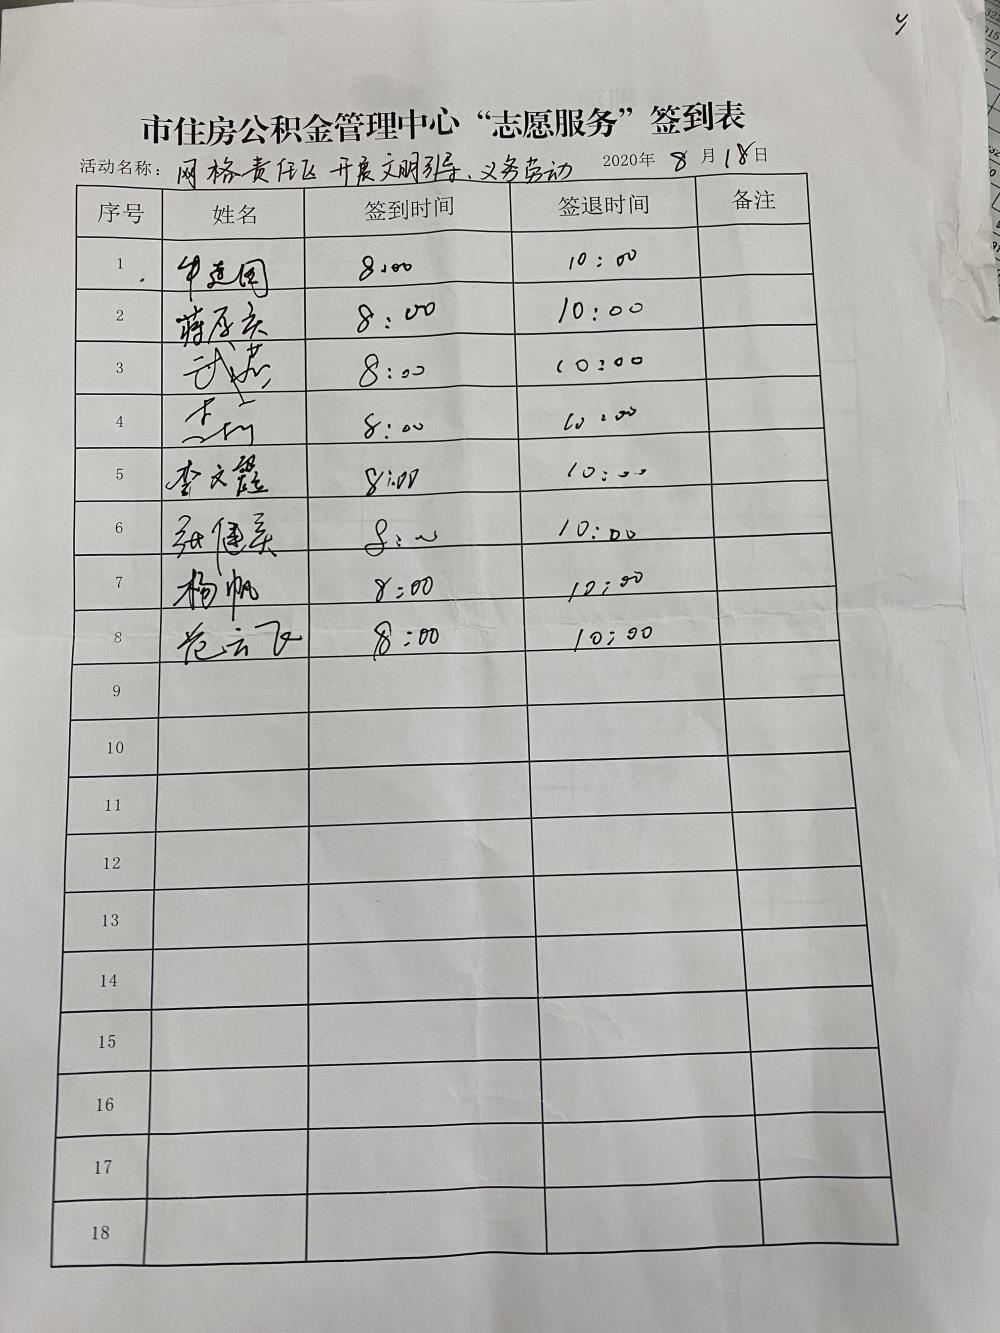 市住房公积金管理中心“志愿服务”签到表
活动名称：网格责任区开展文明引导、义务劳动 2020年8月18日
序号 姓名 签到时间 签退时间 备注
1 牛建国 8:00 10:00
2 8:00 10:00
3 8:00 10:00
4 8:00 10:00
5 李文霞 8:00 10:00
6 张健美 8:00 10:00
7 杨帆 8:00 10:00
8 范云飞 8:00 10:00
9
10
11
12
13
14
15
16
17
18